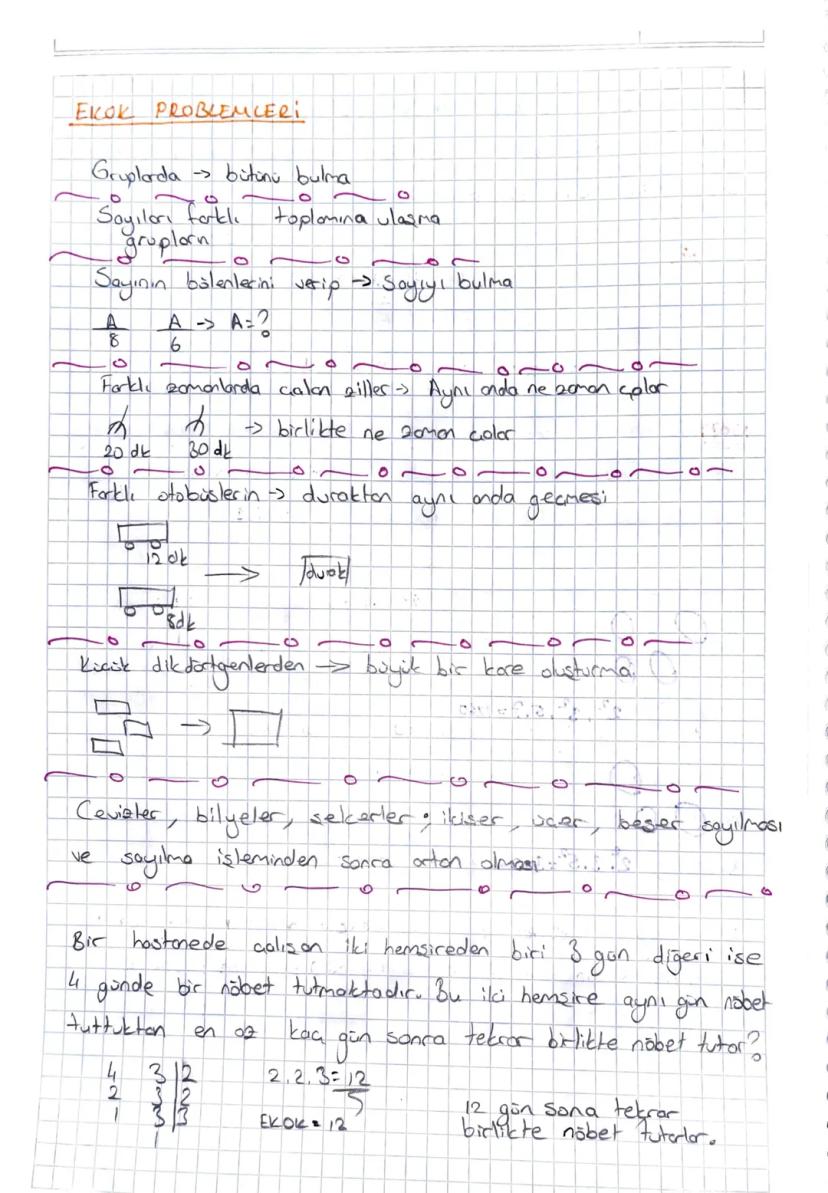 EKOK PROBLEMLERİ
Gruplarda -> bütünü bulma
Sayıları farklı toplamına ulaşma
grupların
Sayının bölenlerini verip -> Sayıyı bulma
A/8 A/6 -> A=?
Farklı zamanlarda çalan ziller -> Aynı anda ne zaman çalar
-> birlikte ne zaman çalar
20 dk 30 dk
Farklı otobüslerin -> duraktan aynı anda geçmesi
12 dk
-> durak
8dk
Küçük dikdörtgenlerden -> büyük bir kare oluşturma
->
Cevizler, bilyeler, şekerler; ikişer, üçer, beşer sayılması
ve sayılma işleminden sonra artan olması
Bir hastanede çalışan iki hemşireden biri 3 gün diğeri ise
4 günde bir nöbet tutmaktadır. Bu iki hemşire aynı gün nöbet
tuttuktan en az kaç gün sonra tekrar birlikte nöbet tutar?
4 3 | 2 2.2.3=12
2 3 | 2
1 3 | 3 EKOK = 12 12 gün sona tekrar
1 birlikte nöbet tutarlar.